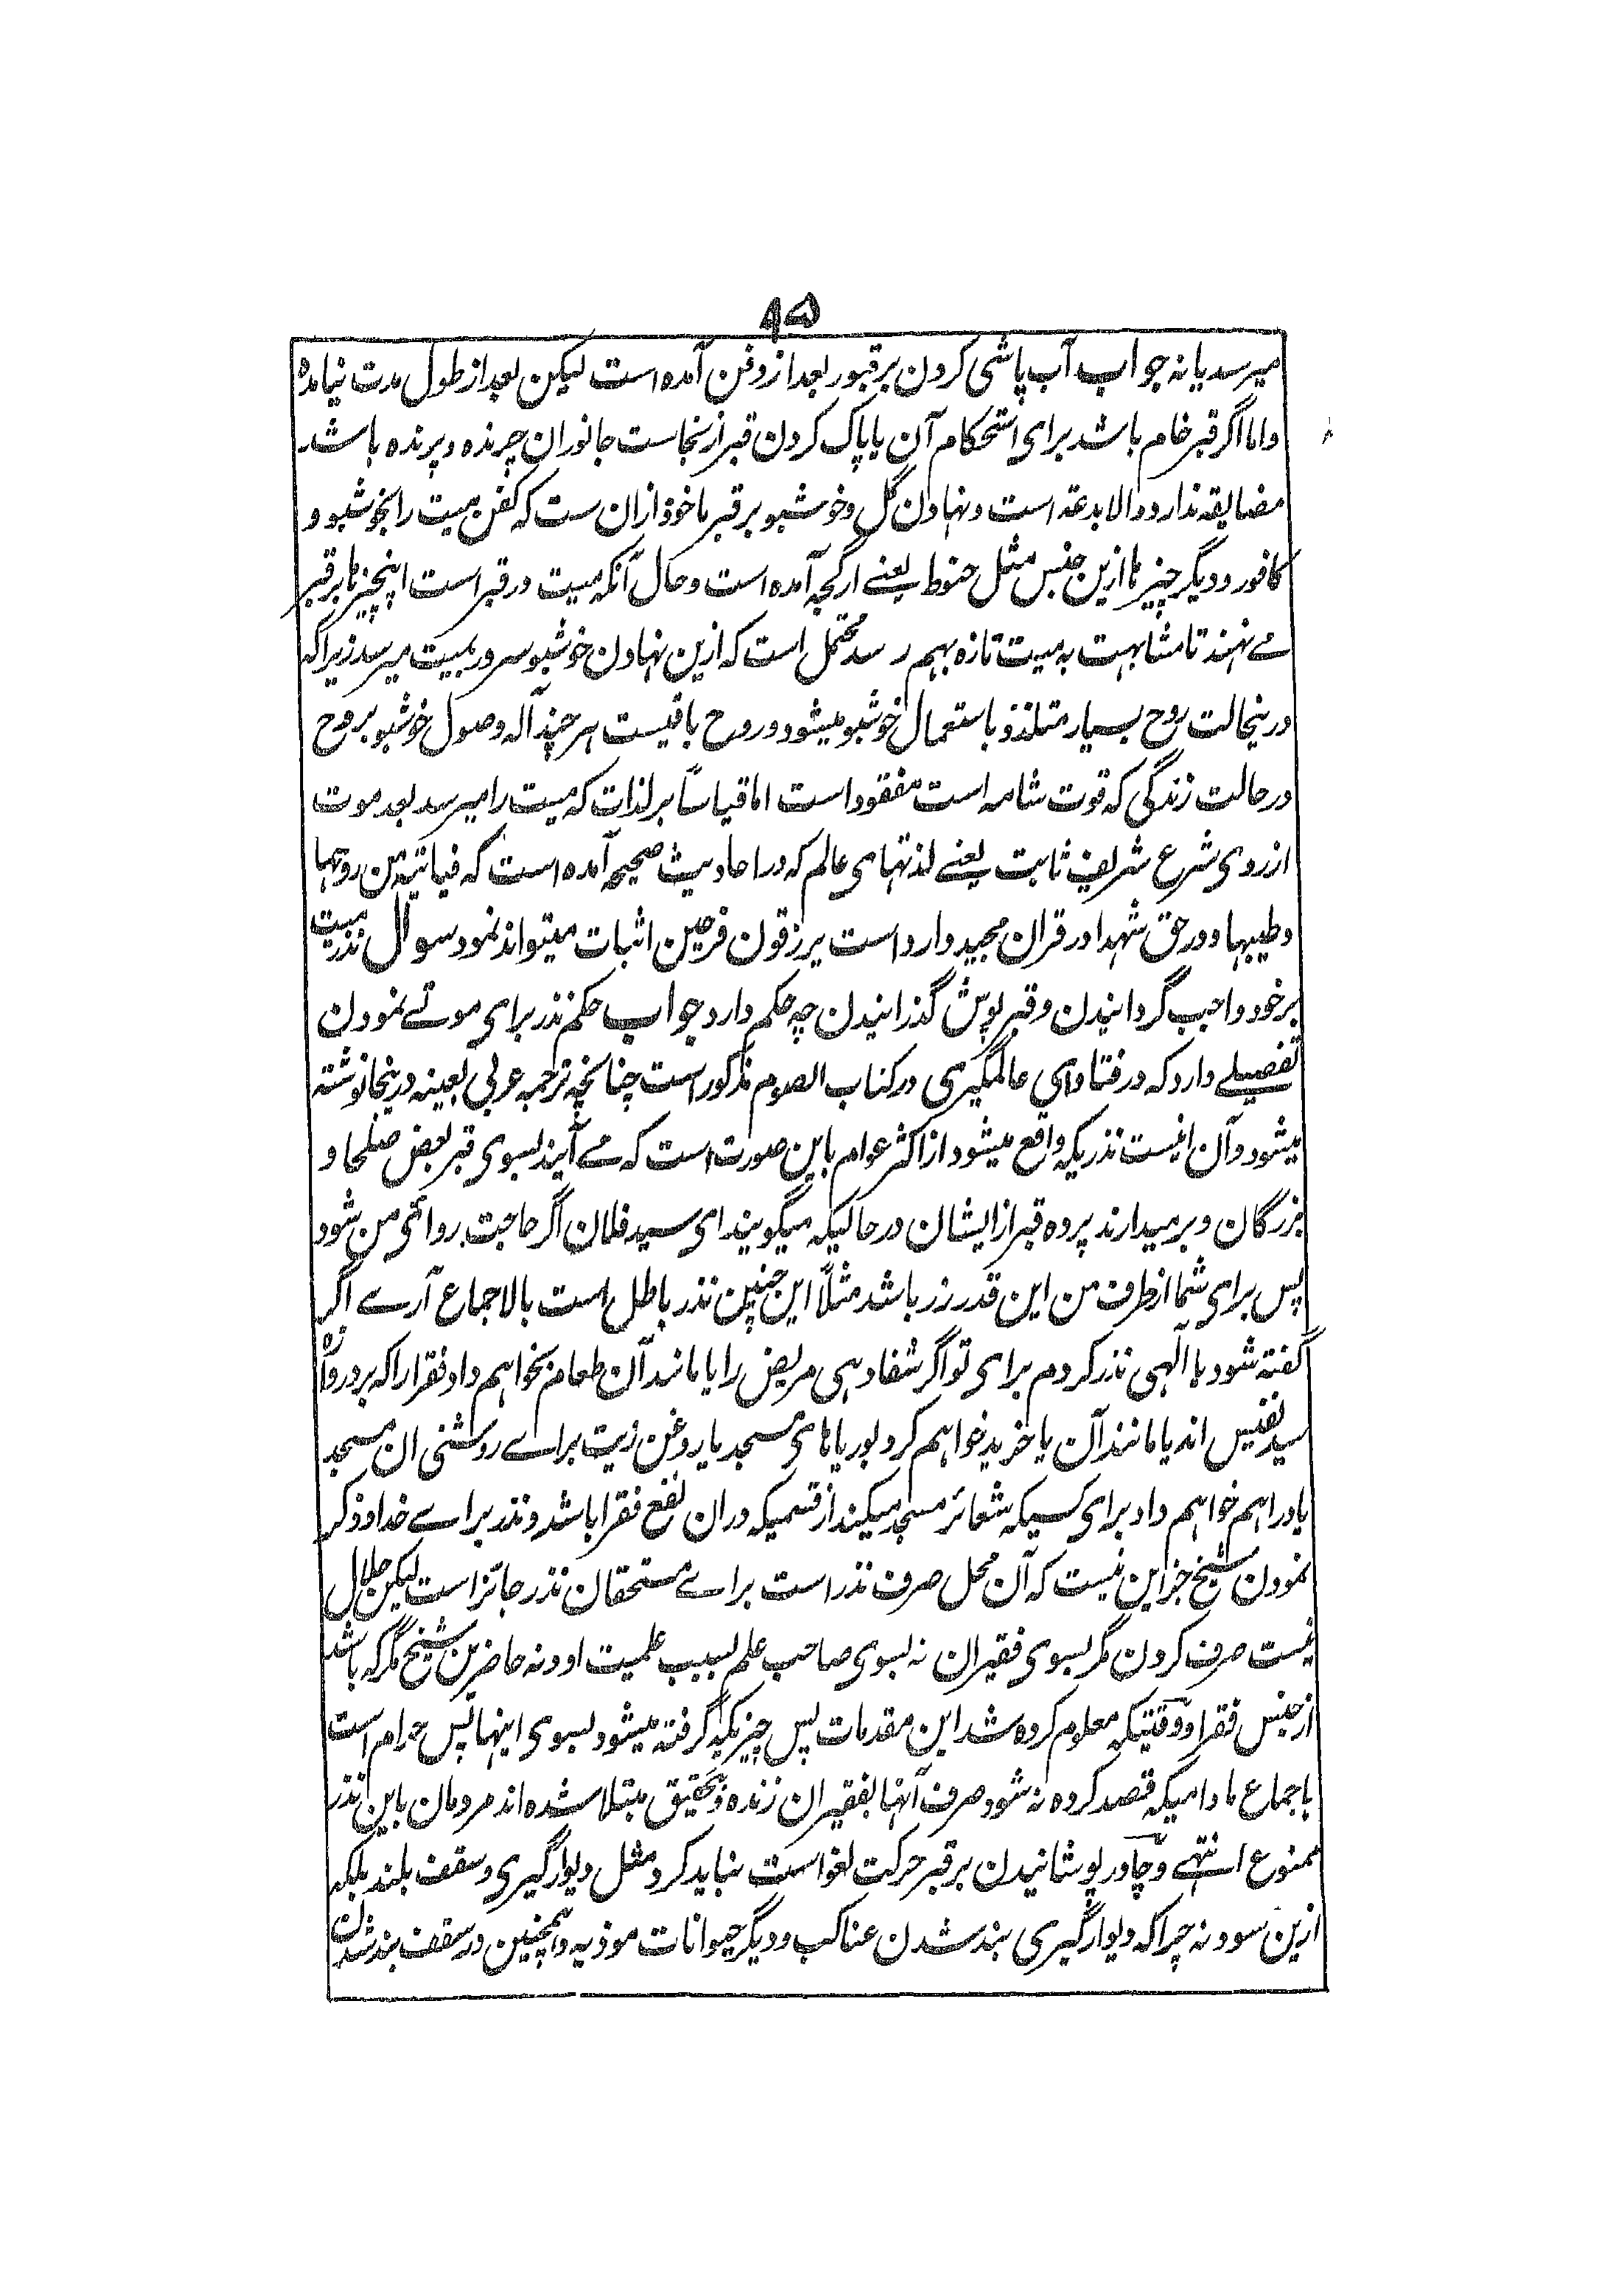 ۹۵
میرسد یا نه جواب آب پاشی کردن بر قبور بعد از دفن آمده است لیکن بعد از طول مدت نیامده
واما اگر قبر خام باشد برای استحکام آن یا پاک کردن قبر از نجاست جانوران چرنده و پرنده باشد
مضایقه ندارد والا بدعة است و نهادن گل و خوشبو بر قبر ماخوذ ازان ست که کفن میت را بخوشبو و
کافور و دیگر چیزها ازین جنس مثل حنوط یعنے ارگجه آمده است و حال آنکه میت در قبر است اینچیزها بر قبر
مے نهند تا مشابهت به میت تازه بهم رسد محتمل است که ازین نهادن خوشبو سرور بمیت میرسد زیراکه
درینحالت روح بسیار متلذذ باستعمال خوشبو میشود و روح باقیست هر چند آله وصول خوشبو بروح
در حالت زندگی که قوت شامه است مفقود است اما قیاساً بر لذات که میت را میرسد بعد موت
از روی شرع شریف ثابت یعنے لذتهای عالم که در احادیث صحیحه آمده است که فیاتیه من روحها
وطیبها و در حق شهدا در قران مجید وارد است یرزقون فرحین اثبات میتواند نمود سوال نذر میت
بر خود واجب گردانیدن و قبر پوش گذرانیدن چه حکم دارد جواب حکم نذر برای موتے نمودن
تفصیلے دارد که در فتاوای عالمگیری در کتاب الصوم مذکور است چنانچه ترجمه عربی بعینه درینجا نوشته
میشود و آن اینست نذریکه واقع میشود از اکثر عوام باین صورت است که مے آیند بسوی قبر بعض صلحا و
بزرگان و بر میدارند پرده قبر از ایشان در حالیکه میگویند ای سید فلان اگر حاجت روائی من شود
پس برای شما از طرف من این قدر زر باشد مثلاً این چنین نذر باطل است بالاجماع آرے اگر
گفته شود یا آلهی نذر کردم برای تو اگر شفا دهی مریض را یا مانند آن طعام بخواهم داد فقرا را که بر دروازه
سید نفیس اند یا مانند آن یا خرید خواهم کرد بوریاهای مسجد یا روغن زیت براے روشنی ان مسجد
یا دراهم خواهم داد برای کسیکه شعائر مسجد میکند از قسمیکه دران نفع فقرا باشد و نذر براے خدا و ذکر
نمودن شیخ جز این نیست که آن محل صرف نذر است براے مستحقان نذر جائز است لیکن حلال
نیست صرف کردن مگر بسوی فقیران نه بسوی صاحب علم بسبب علمیت او و نه حاضرین شیخ مگر که باشد
از جنس فقرا و وقتیکه معلوم کرده شد این مقدمات پس چیزیکه گرفته میشود بسوی اینها پس حرام است
باجماع مادامیکه قصد کرده نه شود صرف آنها بفقیران زنده و تحقیق مبتلا شده اند مردمان باین نذر
ممنوع انتهے و چادر پوشانیدن بر قبر حرکت لغو است نباید کرد و مثل دیوارگیری و سقف بلند بلکه
ازین سود نه چراکه دیوارگیری بند شدن عناکب و دیگر حیوانات موذیه و همچنین در سقف بند شدن